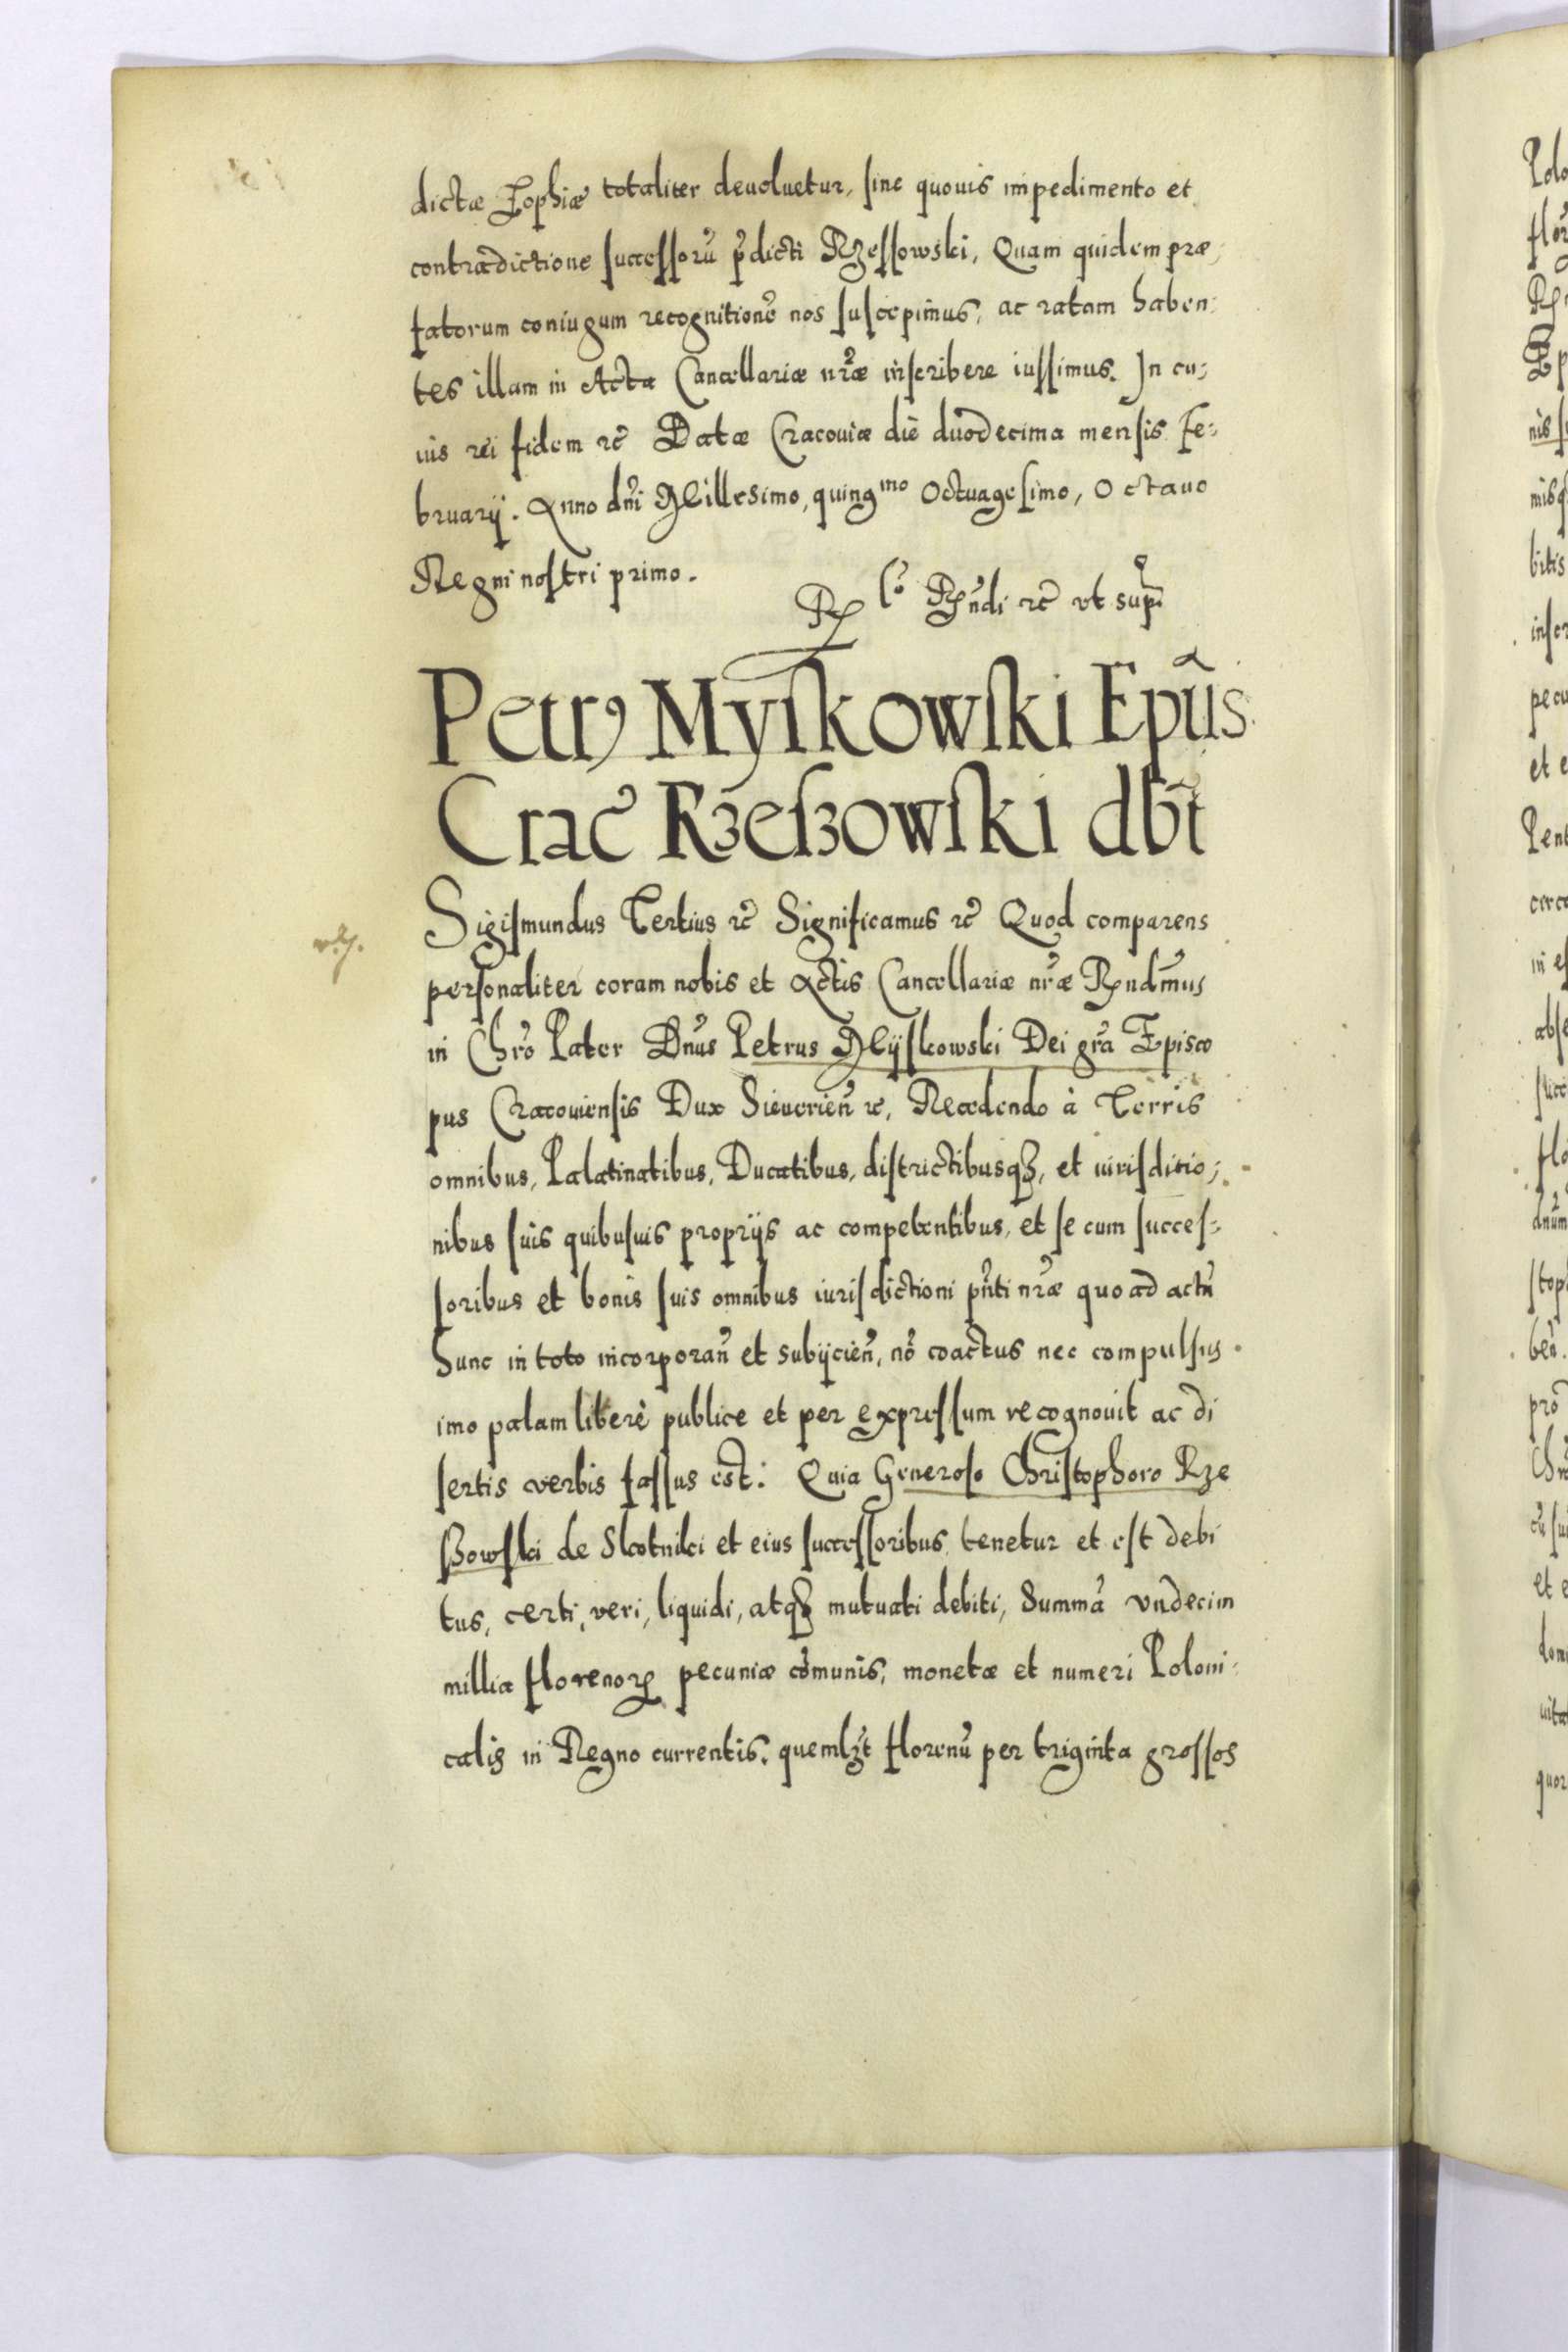 dictæ Zophiæ totaliter deuoluetur, sine quouis impedimento et
contradictione successorũ p̃dicti Rzessowski, Quam quidem præ-
fatorum coniugum recognitionẽ nos suscepimus, ac ratam haben-
tes illam in Acta Cancellariæ nr̃æ inscribere iussimus. In cu-
ius rei fidem rc̃ Datæ Cracouiæ die duodecima mensis Fe-
bruarij. Anno dñi Millesimo, quing^mo Octuagesimo, Octauo
Regni nostri primo.
R^lo Rñdi rc̃ vt sup^a
Petrꝰ Myſkowſki Ep̃us
Crac̃ Rzeſzowſki db̃t
Sigismundus Tertius rc̃ Significamus rc̃ Quod comparens
personaliter coram nobis et Actis Cancellariæ nr̃æ Rndm̃us
in Chr̃o Pater Dñus Petrus Myskowski Dei gr̃a Episco
pus Cracouiensis Dux Sieuerien̄ rc, Recedendo à Terris
omnibus, Palatinatibus, Ducatibus, districtibusqꝫ, et iurisditio-
nibus suis quibusuis proprijs ac competentibus, et se cum succes-
soribus et bonis suis omnibus iurisdictioni pñti nr̃æ quo ad actũ
hunc in toto incorporan̄ et subijcien̄, nõ coactus nec compulsus
imo palam liberè publice et per expressum recognouit ac di
sertis verbis fassus est: Quia Generoso Christophoro Rze
szowski de Skotniki et eius successoribus tenetur et est debi
tus, certi, veri, liquidi, atqꝫ mutuati debiti, Summã vndecim
millia florenoꝝ pecuniæ cõmunis, monetæ et numeri Poloni-
calis in Regno currentis, quemlꝫt florenũ per triginta grossos